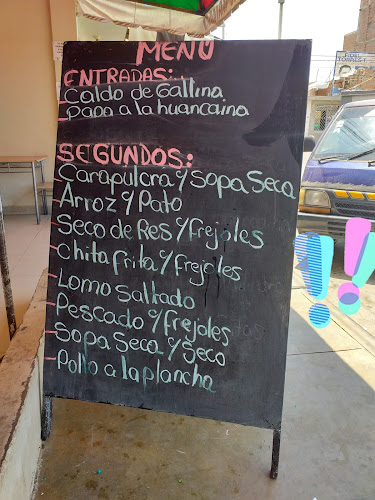 MENU
ENTRADAS:
Caldo de Gallina
papa a la huancaina
SEGUNDOS:
Carapulcra y sopa seca
Arroz y Pato
Seco de Res y frejoles
chita frita y frejoles
Lomo Saltado
Pescado y frejoles
Sopa Seca y Seco
Pollo a la plancha